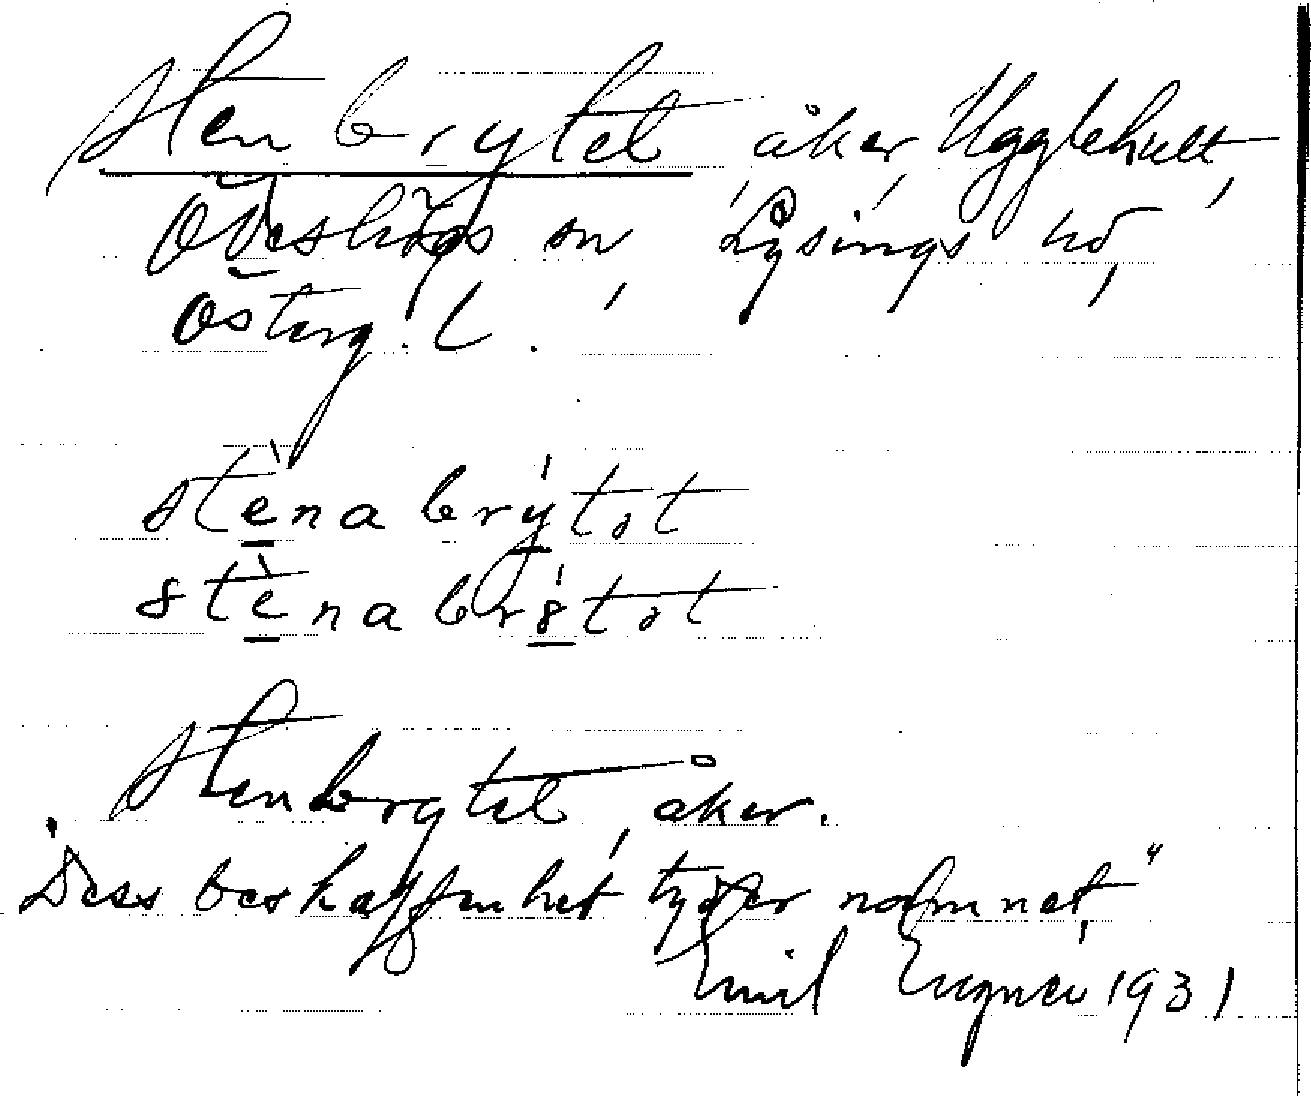 Stenbrytet, åker, Ugglehult,
Ödeshögs sn, Lysings hd,
Österg. l.
stènabrýtət
stènabrýtət
Stenbrytet, åker.
"Dess beskaffenhet tyder namnet,"
Emil 1931